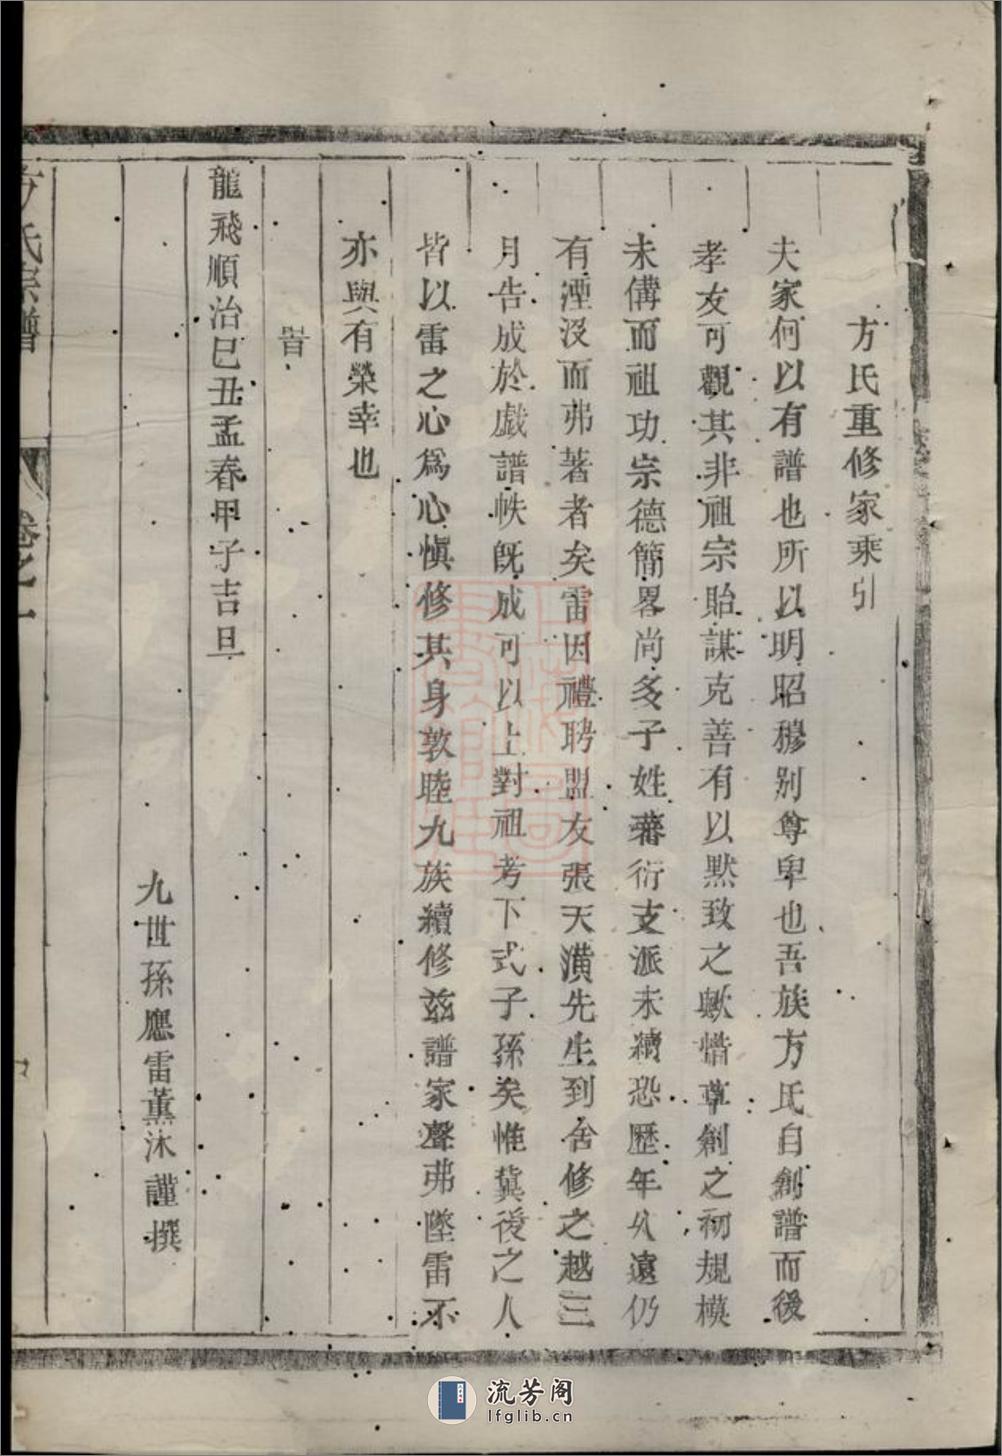 方氏重修家乘引
夫家何以有譜也所以明昭穆别尊卑也吾族方氏自創譜而後
孝友可觀其非祖宗貽謀克善有以默致之歟惜草創之初規模
未備而祖功宗德簡畧尚多子姓蕃衍支派未續恐歷年久遠仍
有湮沒而弗著者矣雷因禮聘盟友張天潢先生到舍修之越三
月告成於戲譜帙既成可以上對祖考下式子孫矣惟冀後之人
皆以雷之心為心愼修其身敦睦九族續修兹譜家聲弗墜雷不
亦與有榮幸也
旹
龍飛順治己丑孟春甲子吉旦
九世孫應雷薰沐謹撰
方氏宗譜 卷之一
流芳阁
lfglib.cn